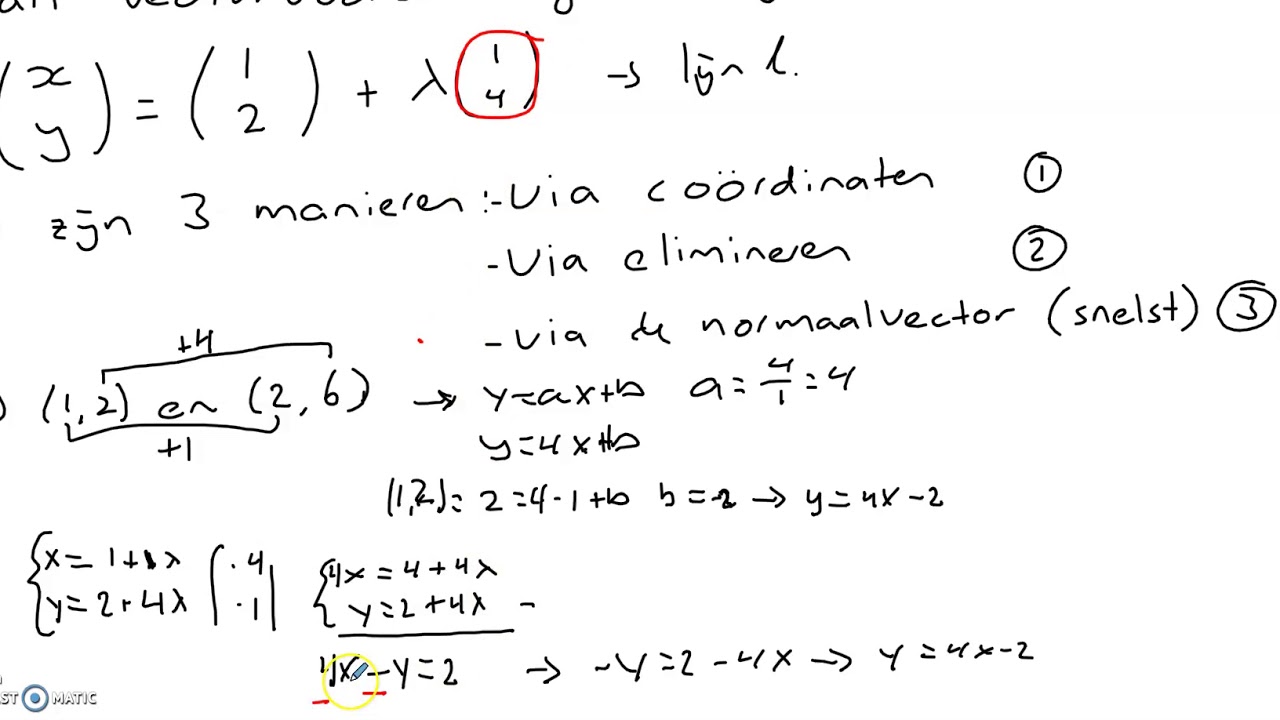 (x y) = (1 2) + λ(1 4) → lijn l.
zijn 3 manieren :- Via coördinaten ①
- Via elimineren ②
- Via de normaalvector (snelst) ③
+4
(1,2) en (2,6) → y=ax+b a = 4/1 = 4
+1
y=4x+b
(1,2)= 2=4·1+b b=-2 → y=4x-2
{x= 1+1λ |·4| {4x=4+4λ
y=2+4λ |·1| y=2+4λ -
4x-y=2 → -y=2-4x → y=4x-2
MATIC